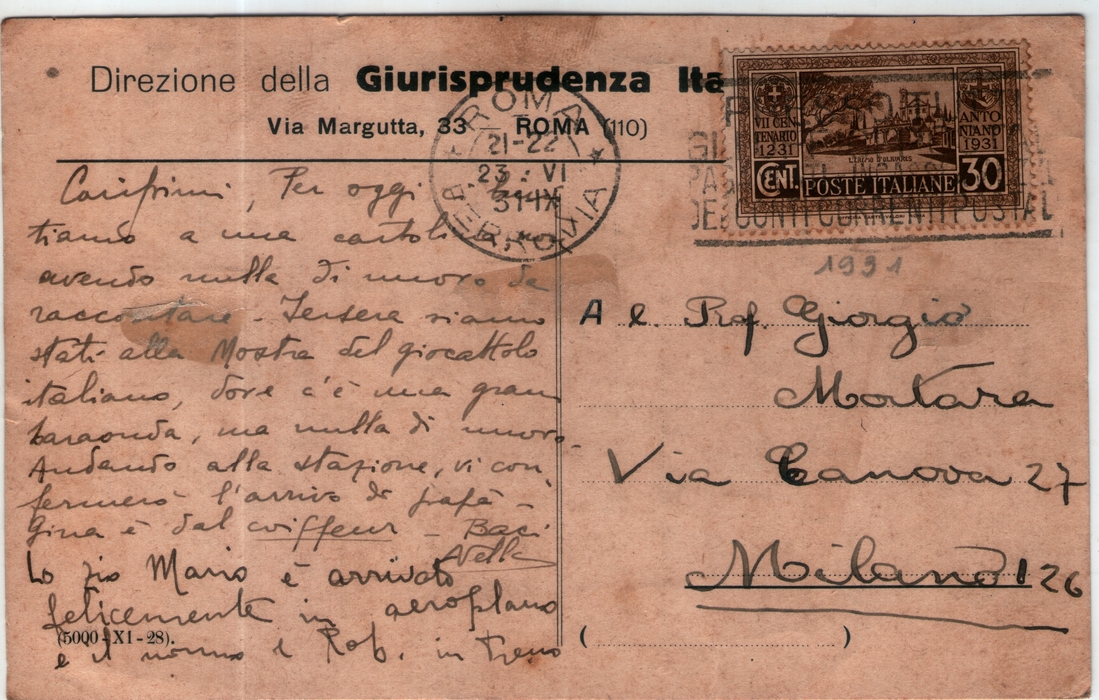 Direzione della Giurisprudenza Ita
Via Margutta, 33 — ROMA (110)
VII CEN
TENARIO
1231
ANTO
NIANO
1931
CENT. POSTE ITALIANE 30
ROMA
21-22
23 . VI
31 IX
FERROVIA
DEI CONTI CORRENTI POSTAL
1931
Carissimi, Per oggi
tiamo a una cartolina
avendo nulla di nuovo da
raccontare - Iersera siamo
stati alla Mostra del giocattolo
italiano, dove c'è una gran
baraonda, ma nulla di nuovo.
Andando alla stazione, vi con
fermerò l'arrivo di papà -
Gina è dal coiffeur - Baci
Nella
Lo zio Mario è arrivato
felicemente in aeroplano
e il nonno e Rob. in treno
(5000-XI-28).
A l. Prof. Giorgio
Mortara
Via Canova 27
Milano 126
( )